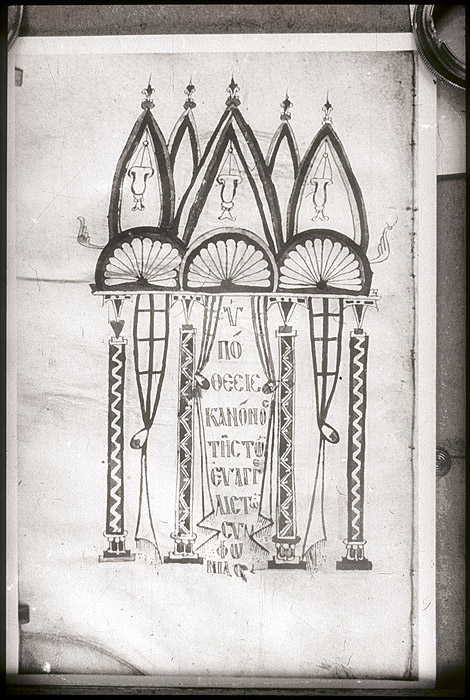 Ὑ
πό
θεσις
κανόνος
τῆς τῶ
εὐαγγε
λιστῶ
συμ
φω
νίας